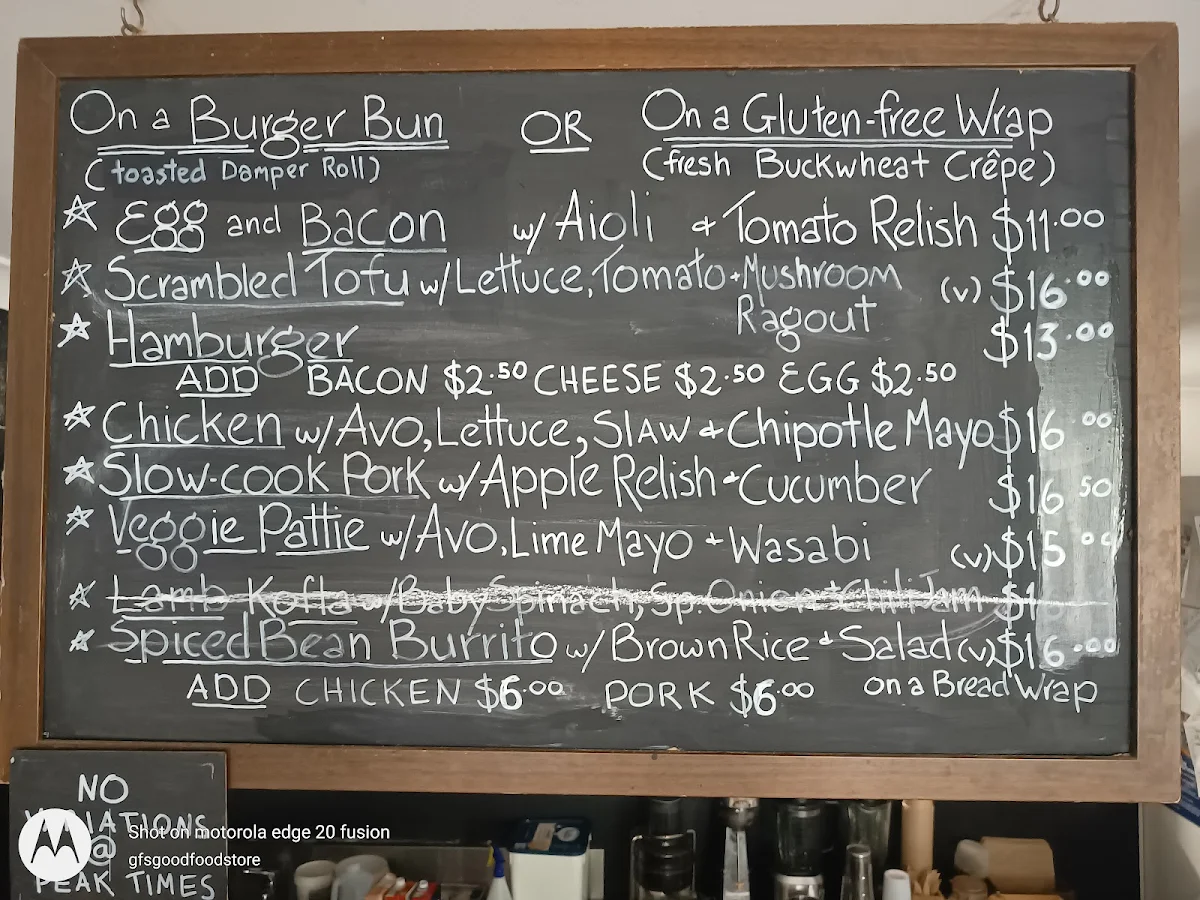 On a Burger Bun OR On a Gluten-free Wrap
(toasted Damper Roll) (fresh Buckwheat Crêpe)
☆ Egg and Bacon w/ Aioli + Tomato Relish $11.00
☆ Scrambled Tofu w/ Lettuce, Tomato + Mushroom (v) $16.00
Ragout
☆ Hamburger $13.00
ADD BACON $2.50 CHEESE $2.50 EGG $2.50
☆ Chicken w/ Avo, Lettuce, Slaw + Chipotle Mayo $16.00
☆ Slow-cook Pork w/ Apple Relish + Cucumber $16 50
☆ Veggie Pattie w/ Avo, Lime Mayo + Wasabi (v) $15.00
☆ Lamb Kofta w/ Baby Spinach, Sp. Onion + Chili Jam $1
☆ Spiced Bean Burrito w/ Brown Rice + Salad (v) $16.00
ADD CHICKEN $6.00 PORK $6.00 on a Bread Wrap
NO
VARIATIONS
@
PEAK TIMES
Shot on motorola edge 20 fusion
gfsgoodfoodstore